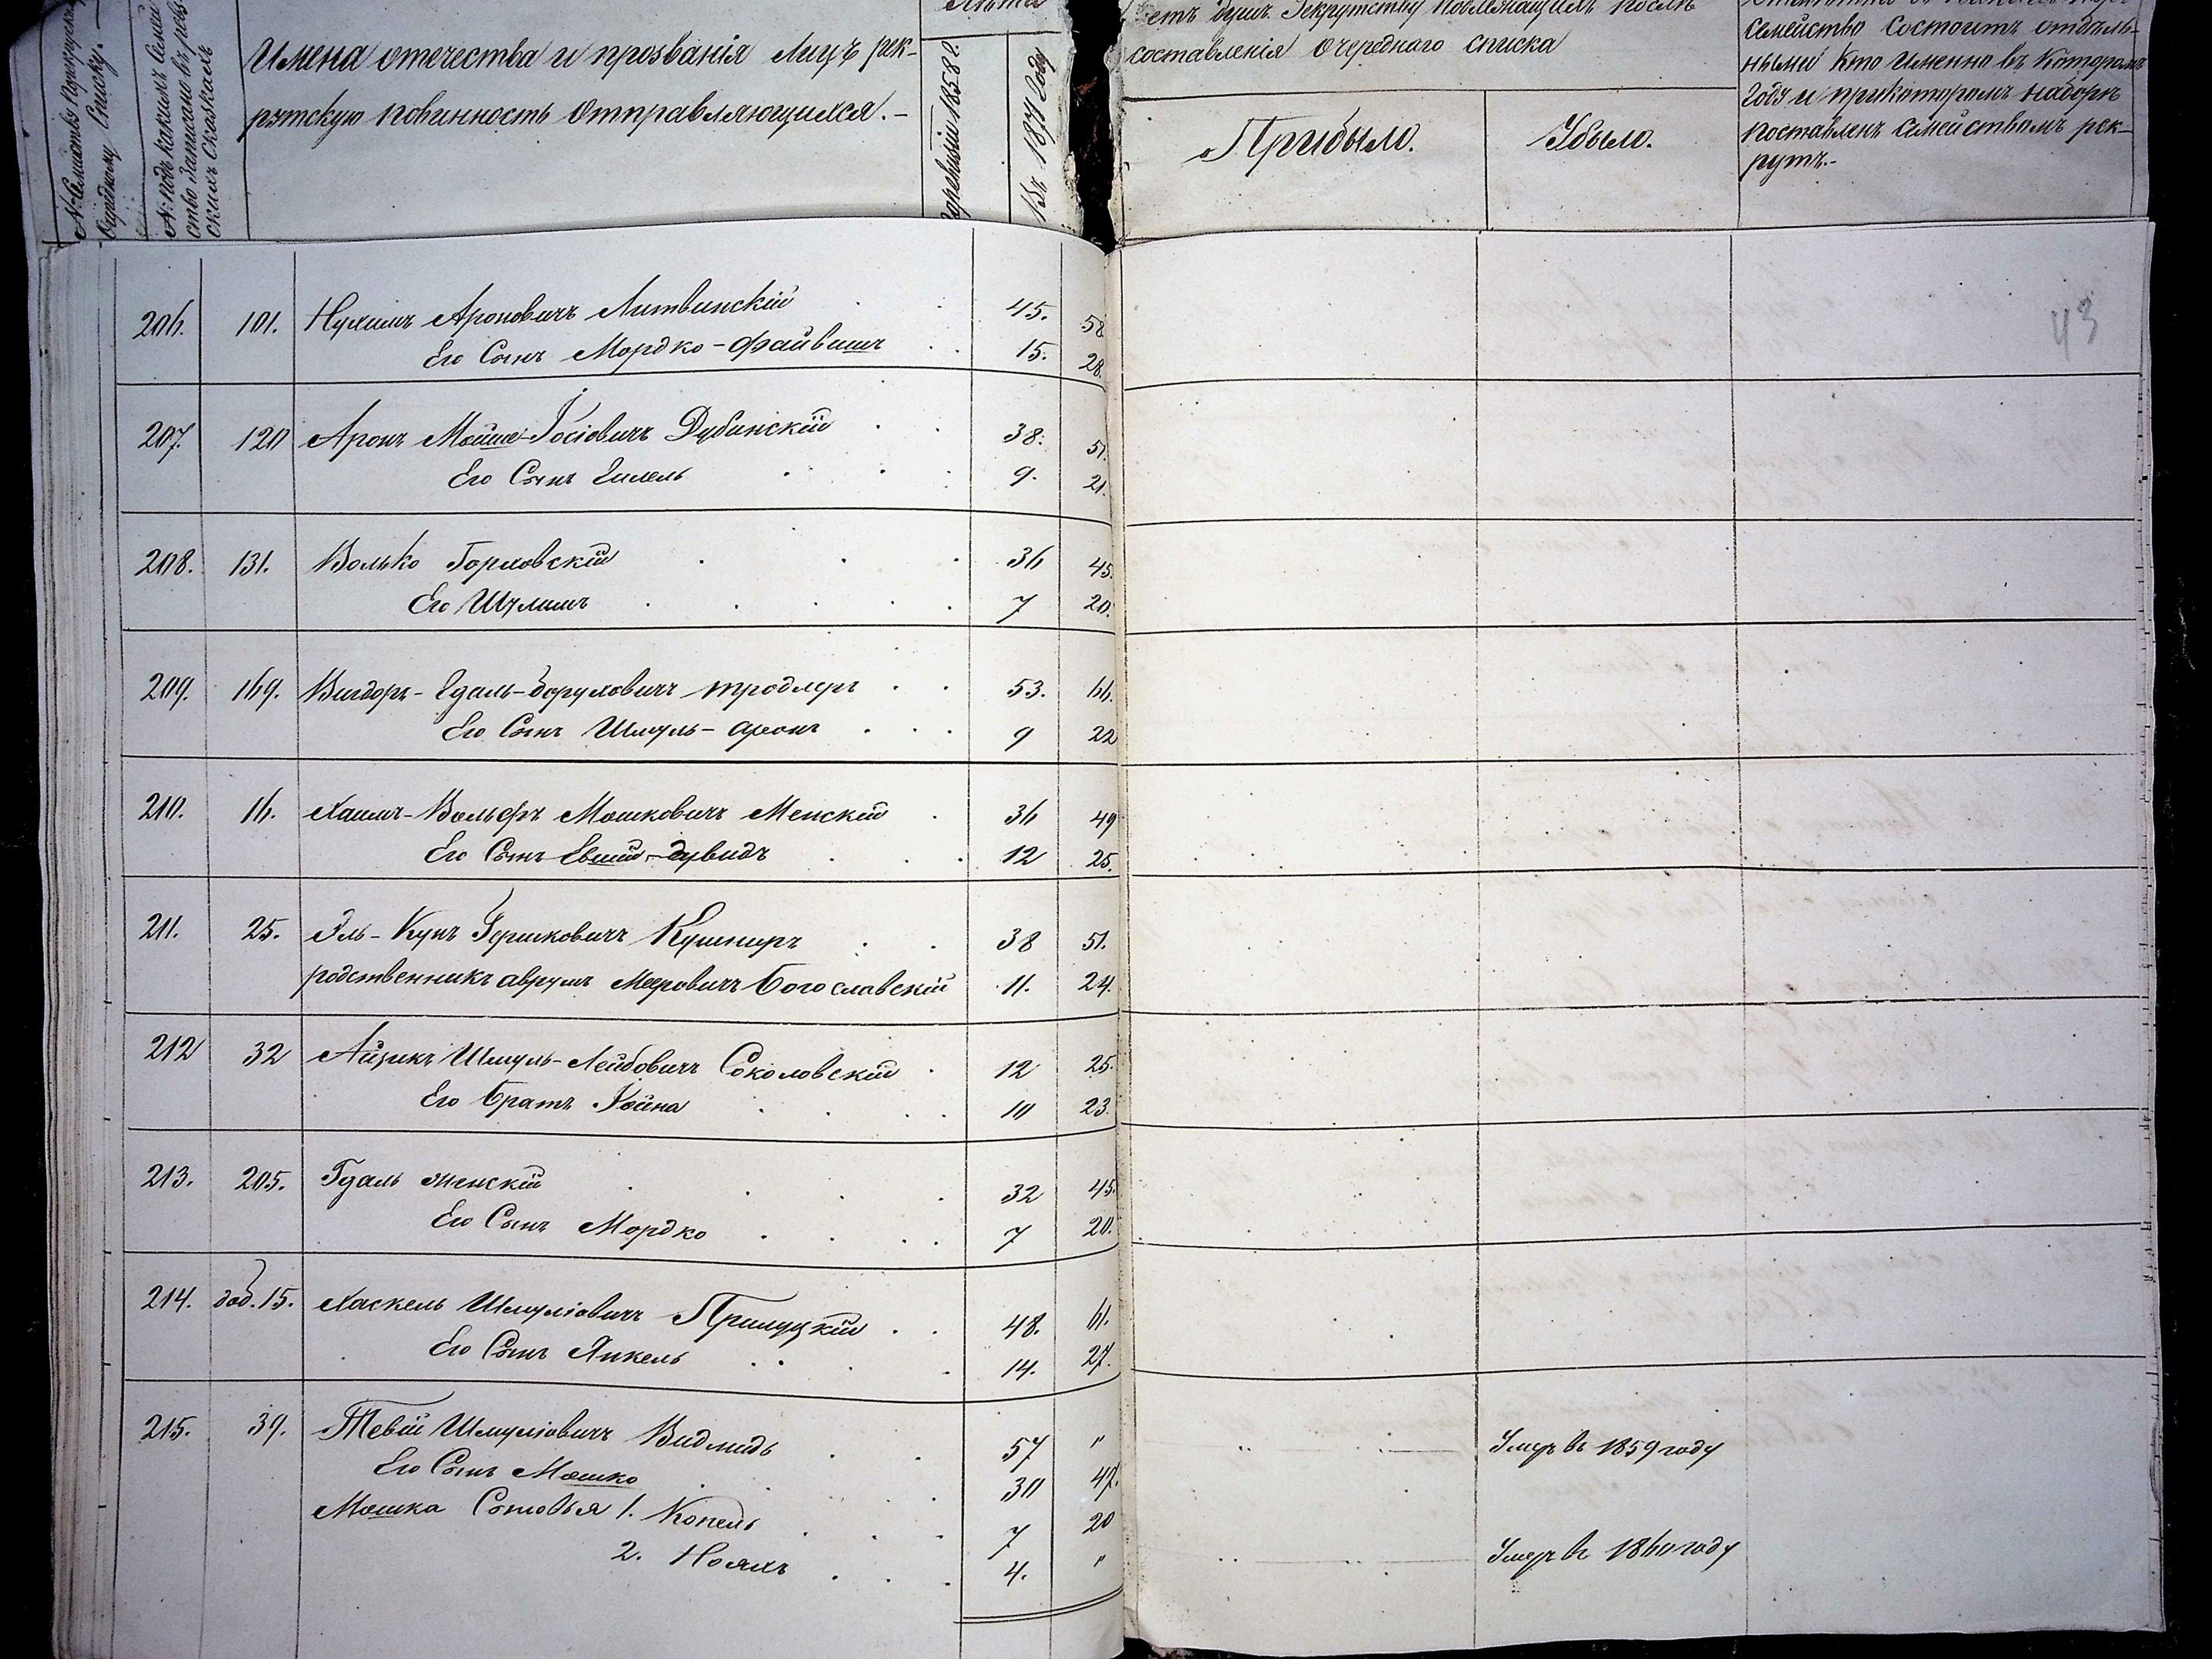 № Семейства
Очередному Списку.
№ подъ какимъ Семей
ство записано въ рев
скихъ Сказкахъ
Имена отечества и прозванія лицъ рек-
рутскую повинность отправляющимся.-
Лѣта
1858 г.
Въ 1871 году
рекрутству подлежащихъ послѣ
составленія очереднаго списка
Прибыло.
Убыло.
Семейство состоитъ отдѣль-
нымъ кто именно въ которомъ
году и прикоторомъ наборѣ
поставленъ семействомъ рек-
рутъ.-
43
206. 101. Нухимъ Ароновичъ Литвинскій 45. 58
Его Сынъ Мордко-Файвишъ 15. 28.
207. 120 Аронъ Мойше-Іосіовичъ Дубинскій 38. 51.
Его Сынъ Гилель 9. 21.
208. 131. Волько Горловскій 36 45.
Его Шулимъ 7 20.
209. 169. Вигдоръ-Гдаль-Боруховичъ тродлеръ 53. 66.
Его Сынъ Шмуль-аронъ 9 22
210. 16. Хаимъ-Вольфъ Мошковичъ Менскій 36 49
Его Сынъ Евшій-дувидъ 12 25.
211. 25. Эль-Кунъ Гершковичъ Кушниръ 38 51.
родственникъ аврумъ Мееровичъ Богославскій 11. 24.
212 32 Айзикъ Шмуль-Лейбовичъ Соколовскій 12 25.
Его братъ Іойна 10 23.
213. 205. Гдаль менскій 32 45.
Его Сынъ Мордко 7 20.
214. доб. 15. Хаскель Шмуліовичъ Прилуцкій 48. 61.
Его Сынъ Янкель 14. 27.
215. 39. Тевій Шмуліовичъ Видмидь 57 " Умеръ въ 1859 году
Его Сынъ Мошко 30 47.
Мошка Сыновья 1. Копель 7 20
2. Ноахъ 4. " Умеръ въ 1860 году